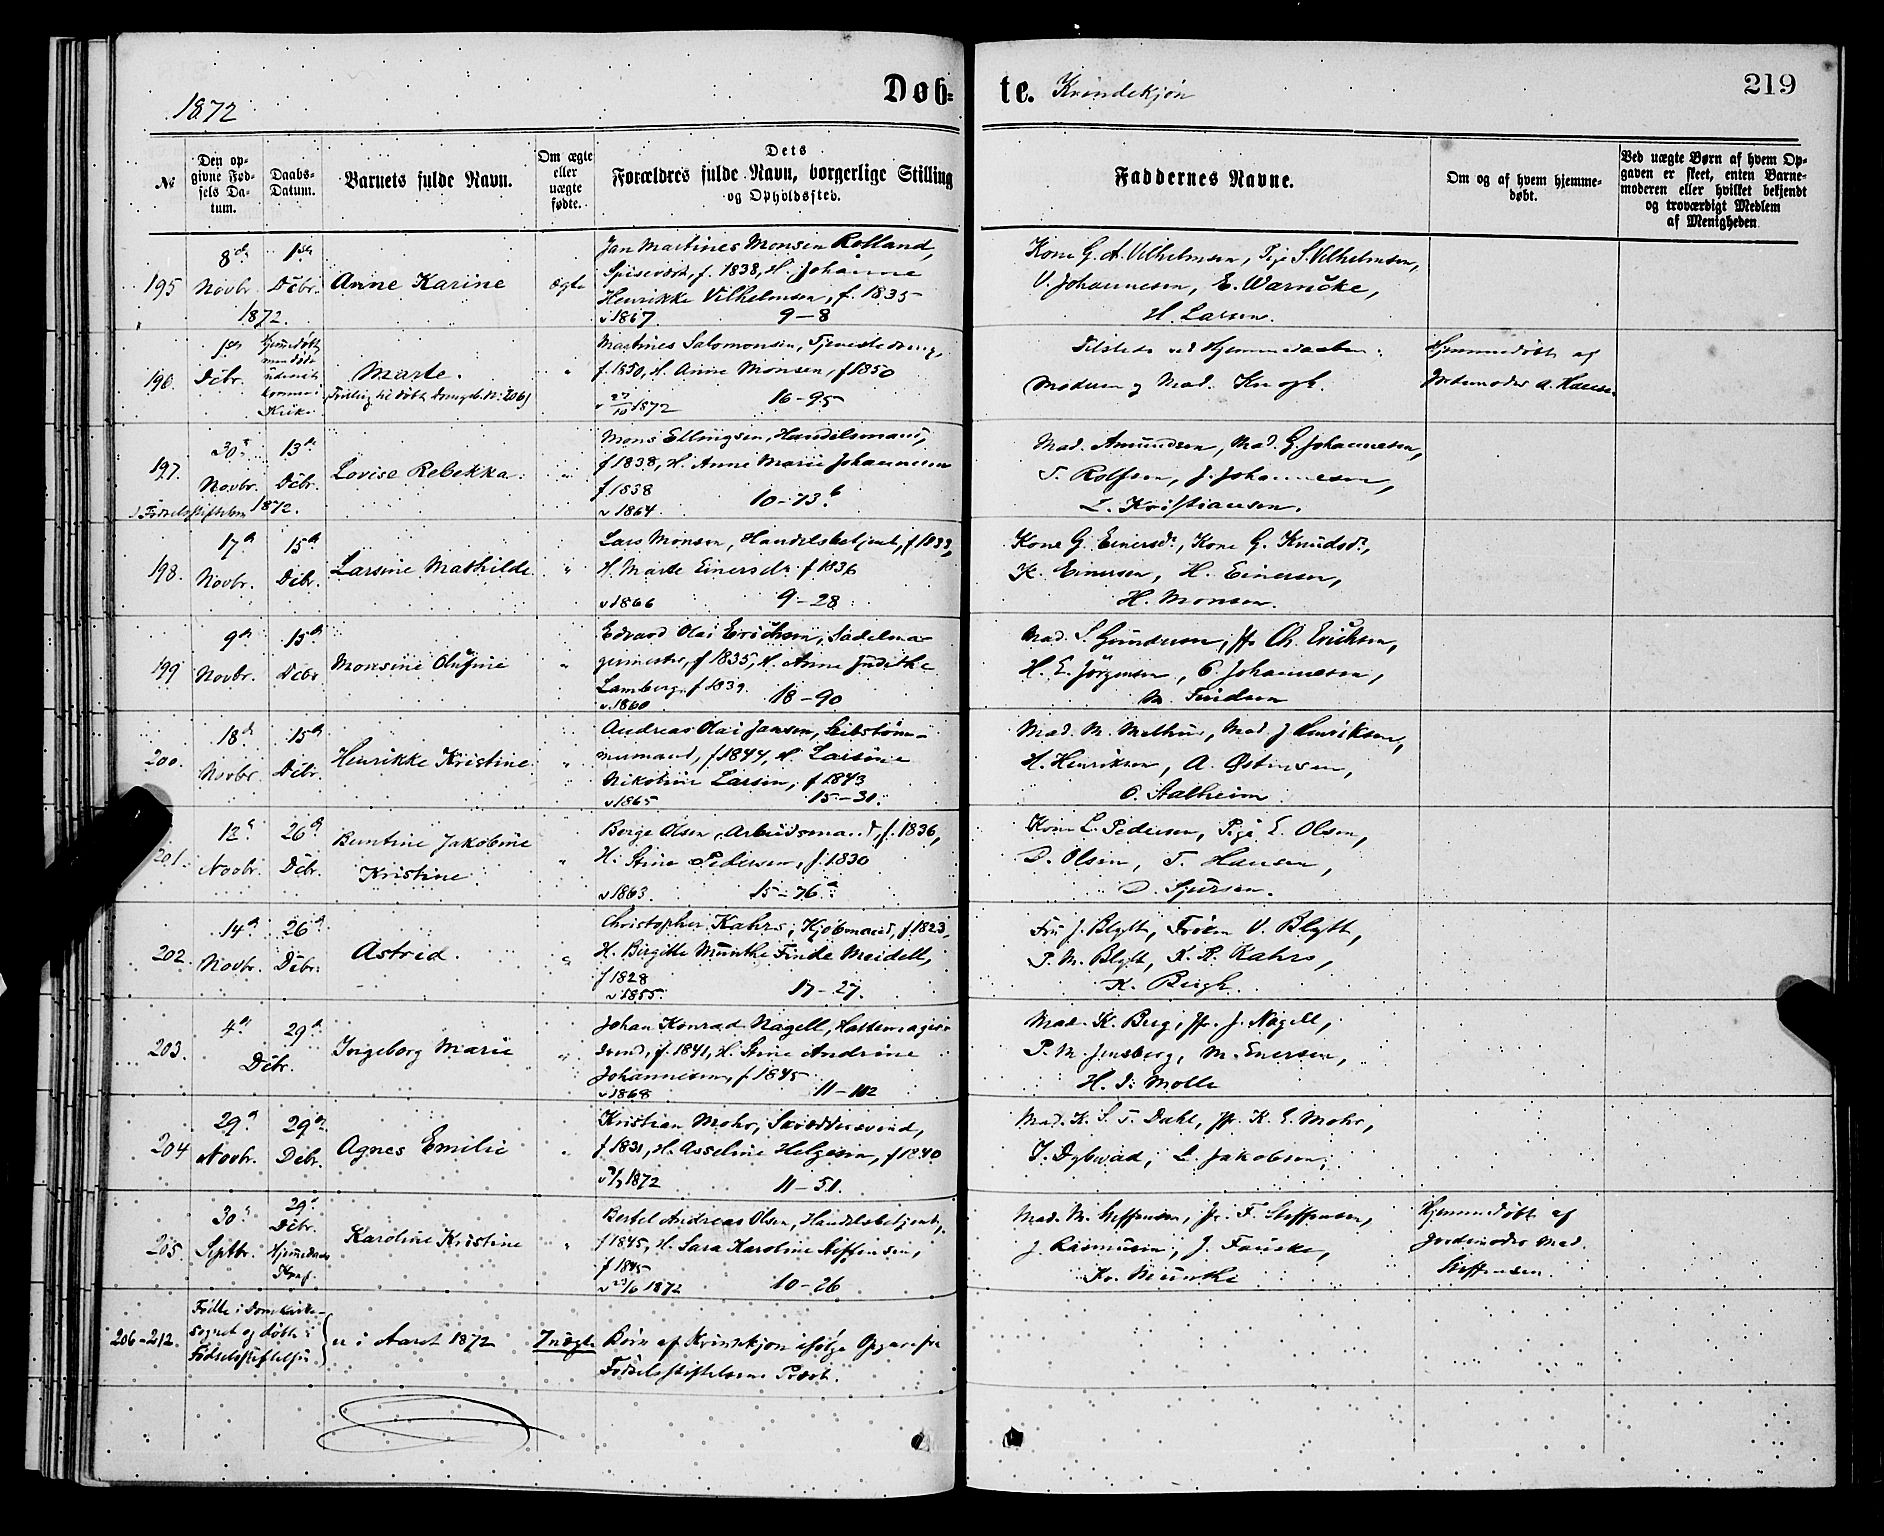 1872
Døb-
te. Kvindekjøn
219
№
Den op-
givne Fød-
sels Da-
tum.
Daabs-
Datum.
Barnets fulde Navn.
Om ægte
eller
uægte
fødte.
Dets
Forældres fulde Navn, borgerlige Stilling
og Opholdssted.
Faddernes Navne.
Om og af hvem hjemme-
døbt.
Ved uægte Børn af hvem Op-
gaven er skeet, enten Barne-
moderen eller hvilket bekjendt
og troværdigt Medlem
af Menigheden
195
8de
Novbr.
1ste
Debr.
1872.
Anne Karine
ægte
Jan Martines Monsen Rolland,
Spisevært, f. 1838, H. Johanne
Henrikke Vilhelmsen, f. 1835
v 1867. 9-8
Kone G. A. Vilhelmsen, Pige S. Vilhelmsen,
V. Johannesen, E. Warncke,
H. Larsen.
196.
1ste
Debr.
Hjemmedøbt
men døde
Kirke
Marte.
"
Martines Salomonsen, Tjenestedreng,
f. 1850, H. Anne Monsen, f 1850
v 27/10 1872 16-95
Tilstede ved Hjemmedaaben:
Moderen og Mad. Knoph.
Hjemmedøbt af
Jordemoder A. Hansen
197.
30te
Novbr.
13de
Debr.
1872.
i Fødselsstiftelsen
Lovise Rebekka.
"
Mons Ellingsen, Handelsmand,
f 1838, H. Anne Marie Johannesen
f 1838
v 1864. 10-73b
Mad. Amundsen, Mad. G. Johannesen,
T. Rolfsen, J. Johannesen,
L. Kristiansen.
198.
17de
Novbr.
15de
Debr.
Larsine Mathilde
"
Lars Monsen, Handelsbetjent, f 1833,
H. Marte Einersdr f 1836
v 1866 9-28
Kone G. Einersdr, Kone G. Knudsdr,
K. Einersen, H. Einersen,
H. Monsen.
199
9de
Novbr.
15de
Debr
Monsine Olufine
"
Edvard Olai Erichsen, Sadelma-
germester, f 1835, H. Anne Judithe
Lamberg, f 1839.
v 1860 18-90
Mad. S. Gundersen, Jfr Ch. Eriksen,
H. E. Jørgensen, O. Johannesen,
200.
18de
Novbr.
15de
Debr.
Henrikke Kristine
"
Andreas Olai Jansen,
f 1844, H. Larsine
Nikoline Larsen, f 1843
v 1865 15-30.
Mad. M. Methus, Mad J Henriksen,
H. Henriksen, A. Østensen,
O. Stalheim
201.
12te
Novbr.
26de
Debr.
Berntine Jakobine
Kristine
"
Børge Olsen, Arbeidsmand, f. 1836,
H. Stine Pedersen, f. 1830
v 1863. 15-76a
Kone L. Pedersen, Pige E. Olsen,
D. Olsen, T. Hansen,
D. Sjursen.
202.
14de
Novbr.
26de
Debr.
Astrid.
"
Christopher Kahrs, Kjøbmand, f 1823,
H. Birgitte Munthe Finde Meidell,
f 1828
v 1855. 17-27.
Fru J. Blytt, Frøken V. Blytt,
P. M. Blytt, K. R. Kahrs,
K. Bergh.
203.
4de
29de
Debr.
Ingeborg Marie
"
Johan Konrad Nagell, Hattemager-
svend, f. 1841, H. Stine Andrine
Johannesen, f 1845
v 1868 11-102
Mad. K. Berg, Jfr. J. Nagell,
P. M. Jensberg, M. Enersen,
H. D. Molle
204
29de
Novbr.
29de
Debr.
Agnes Emilie
"
Kristian Mohr, Skræddersvend,
f 1831, H. Asseline Helgesen, f 1840
1872 11-51.
Mad. K. S. T. Dahl, Jfr. K. E. Mohr,
J. Dybwad, L. Jakobsen,
205.
30te
Septbr.
29de
Debr.
Hjemmedaab
Karoline Kristine
"
Bertel Andreas Olsen, Handelsbetjent,
f 1845, H. Sara Karoline Steffensen,
f 1845
v 23/6 1872 10-26
Mad. M. Steffensen, Jfr. F. Steffensen,
J. Rasmusen, J. Fauske,
Fr. Munthe
Hjemmedøbt af
Jordemoder Mad.
Steffensen.
206-212.
Fødte i Domkirke-
sognet og døbte i
Fødselsstiftelsen
er i Aaret 1872
7 uægte
Børn af Kvindekjøn ifølge Opgave fra
Fødselsstiftelsens Præst.